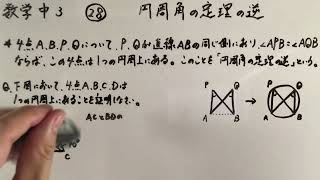 数学中3 ㉘ 円周角の定理の逆
★4点A.B.P.Qについて、P.Qが直線ABの同じ側にあり、∠APB=∠AQB
ならば、この4点は1つの円周上にある。このことを「円周角の定理の逆」という。
Q.下図において、4点A.B.C.Dは
1つの円周上にあることを証明しなさい。
P Q P Q
A B A B
ACとBDの
C